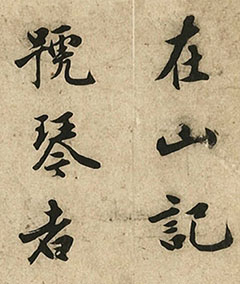 在山記
號琴者